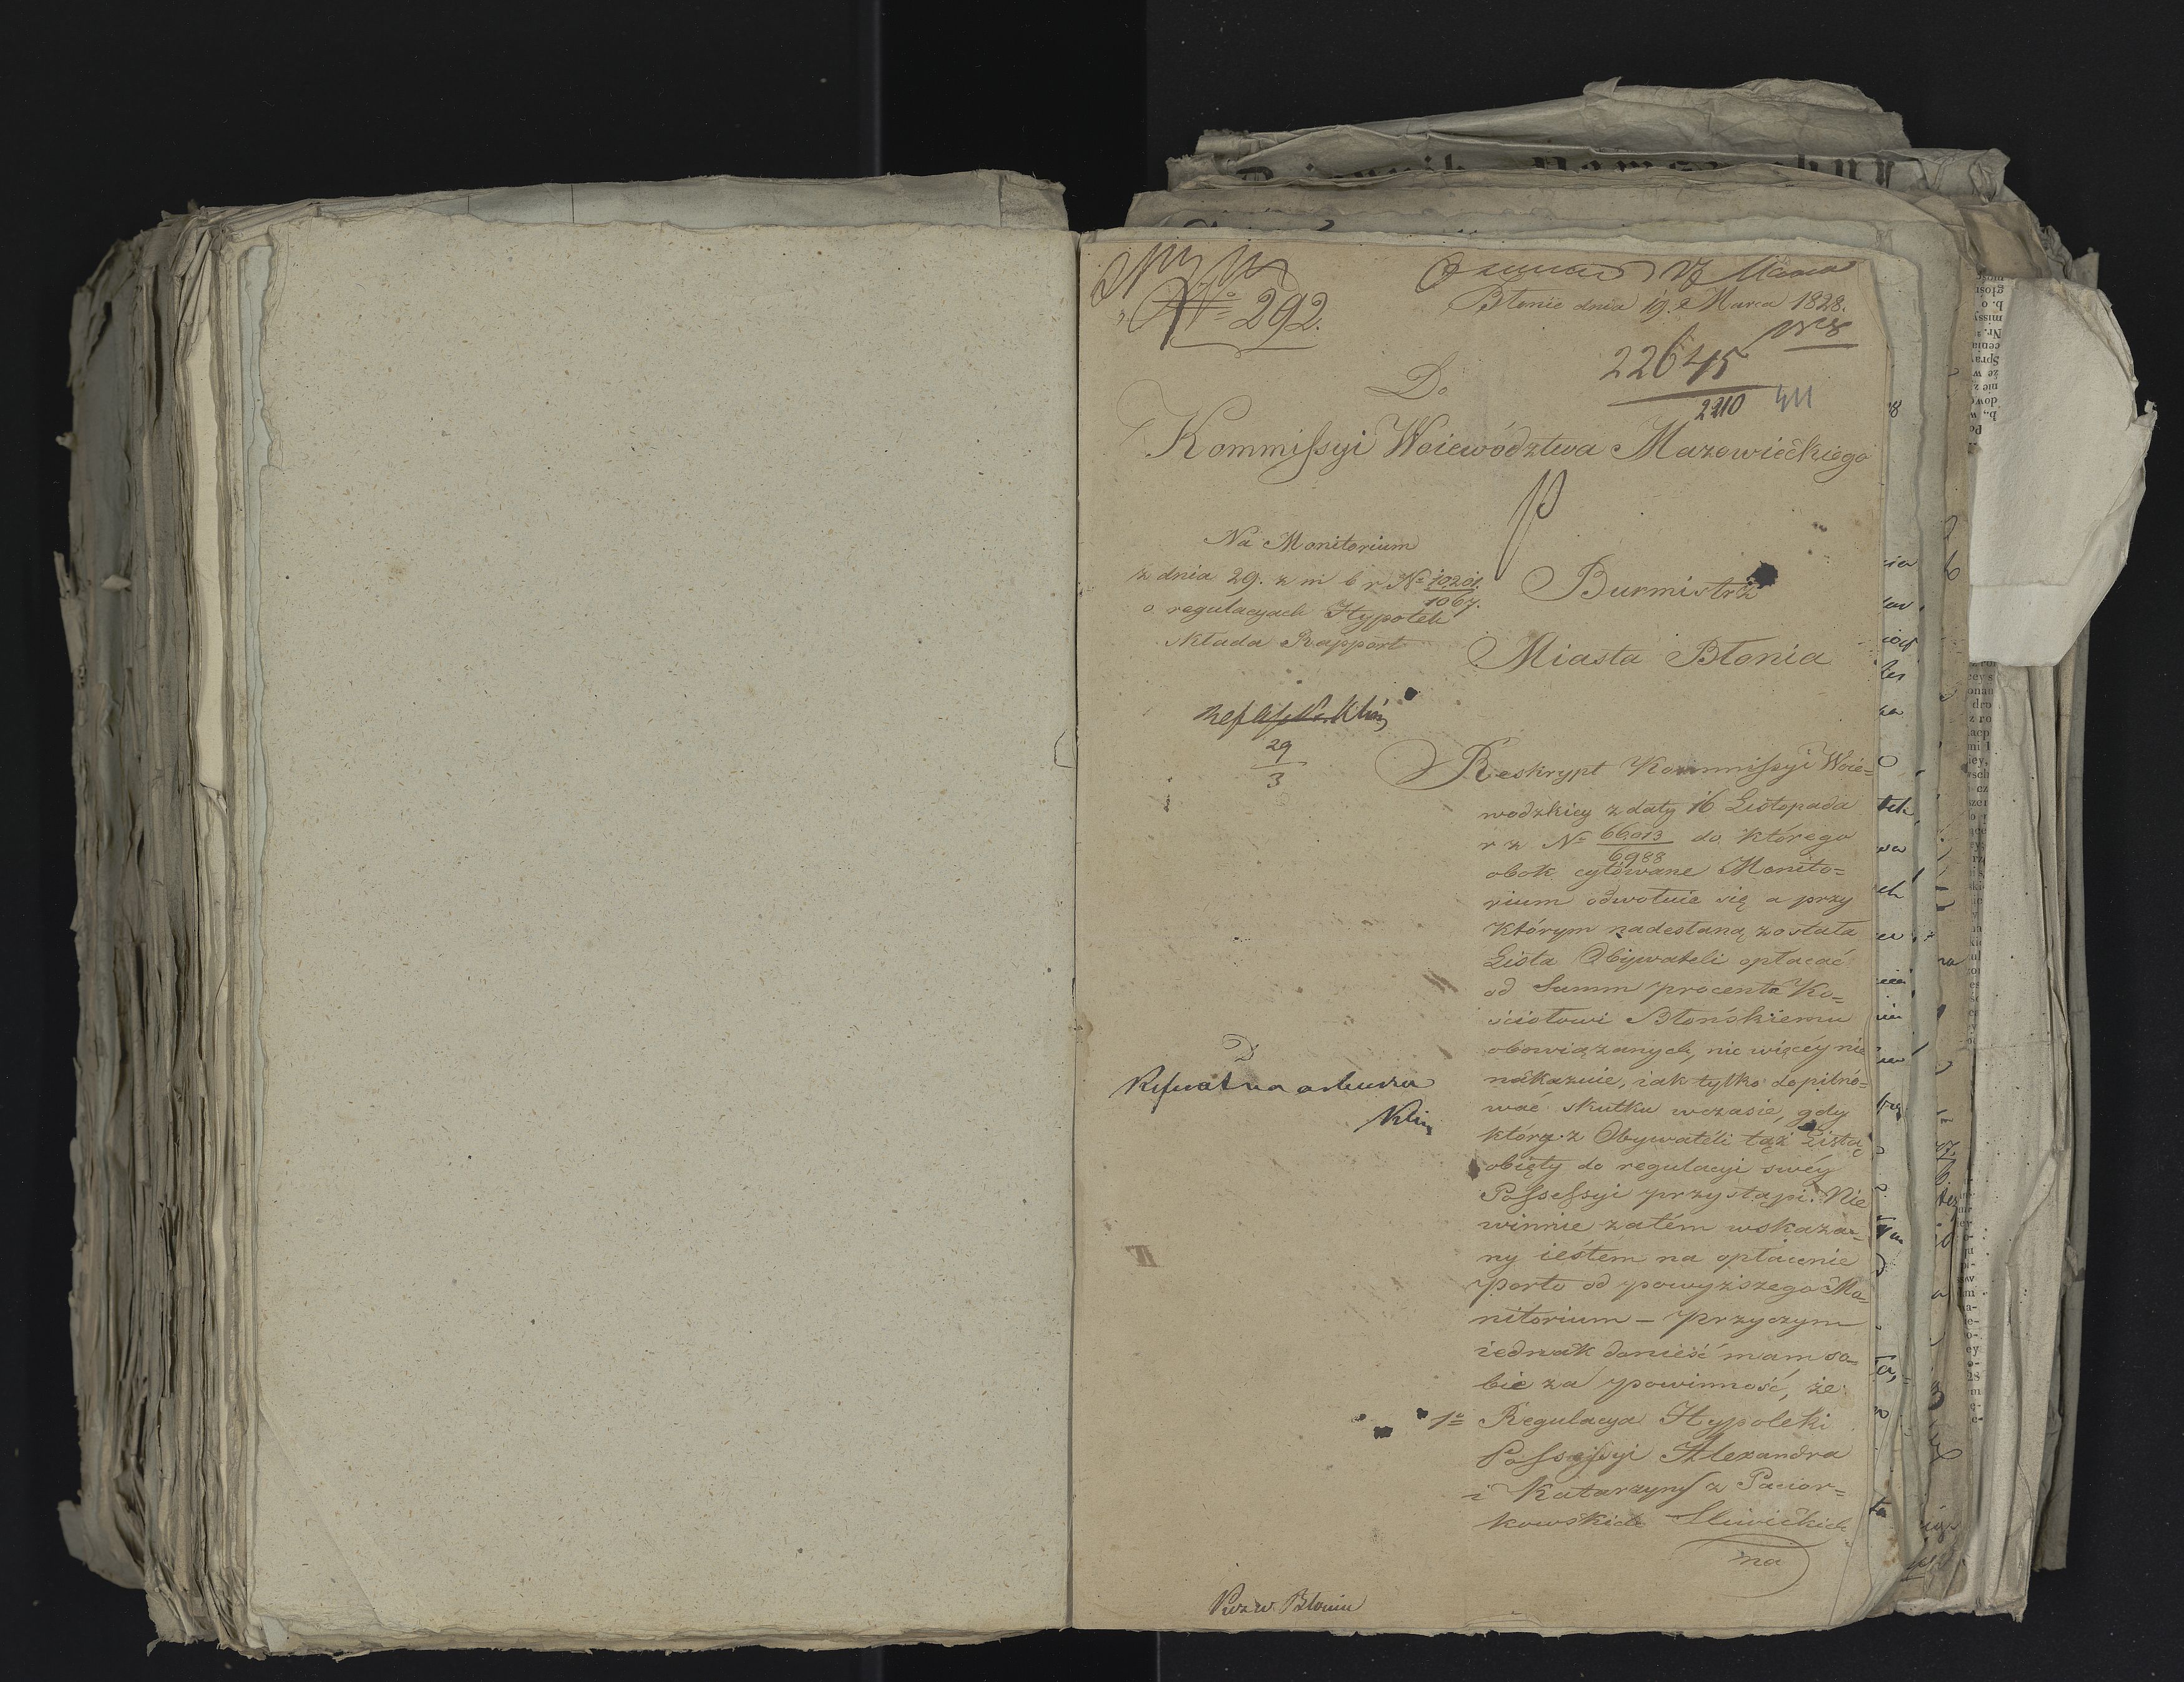 No 292.
Błonie dnia 19. Marca 1828.
No 8
22645
2210
Do
Kommissyi Woiewództwa Mazowieckiego
Burmistrz
Miasta Błonia
Na Monitorium
z dnia 29. z m b r No 10201.
1067.
o regulacyach Hypotek
składa Rapport
29
3
Reskrypt Kommissyi Woie=
wodzkiey z daty 16 Listopada
r z No 66013 do którego
6988
obok cytowane Monito=
rium odwołuie się a przy
którym nadesłaną została
Lista Obywateli opłacać
od Summ procenta Ko=
ściołowi Błońskiemu
obowiązanych, nic więcéy nie
nakazuie, iak tylko dopilno=
wać skutku wczasie, gdy
któryz Obywateli tąż Listą
obięty do regulacyi swéy
Possessyi przystąpi. Nie
winnie zatém wskaza=
ny iestem na opłacenie
porto od powyższego Mo=
nitorium – przyczym
iednak donieść mam so=
bie za powinność, że
1o Regulacya Hypoteki
Possessyi Alexandra
i Katarzyny z Pacior=
kowskich Sliwickich
na
w Błoniu